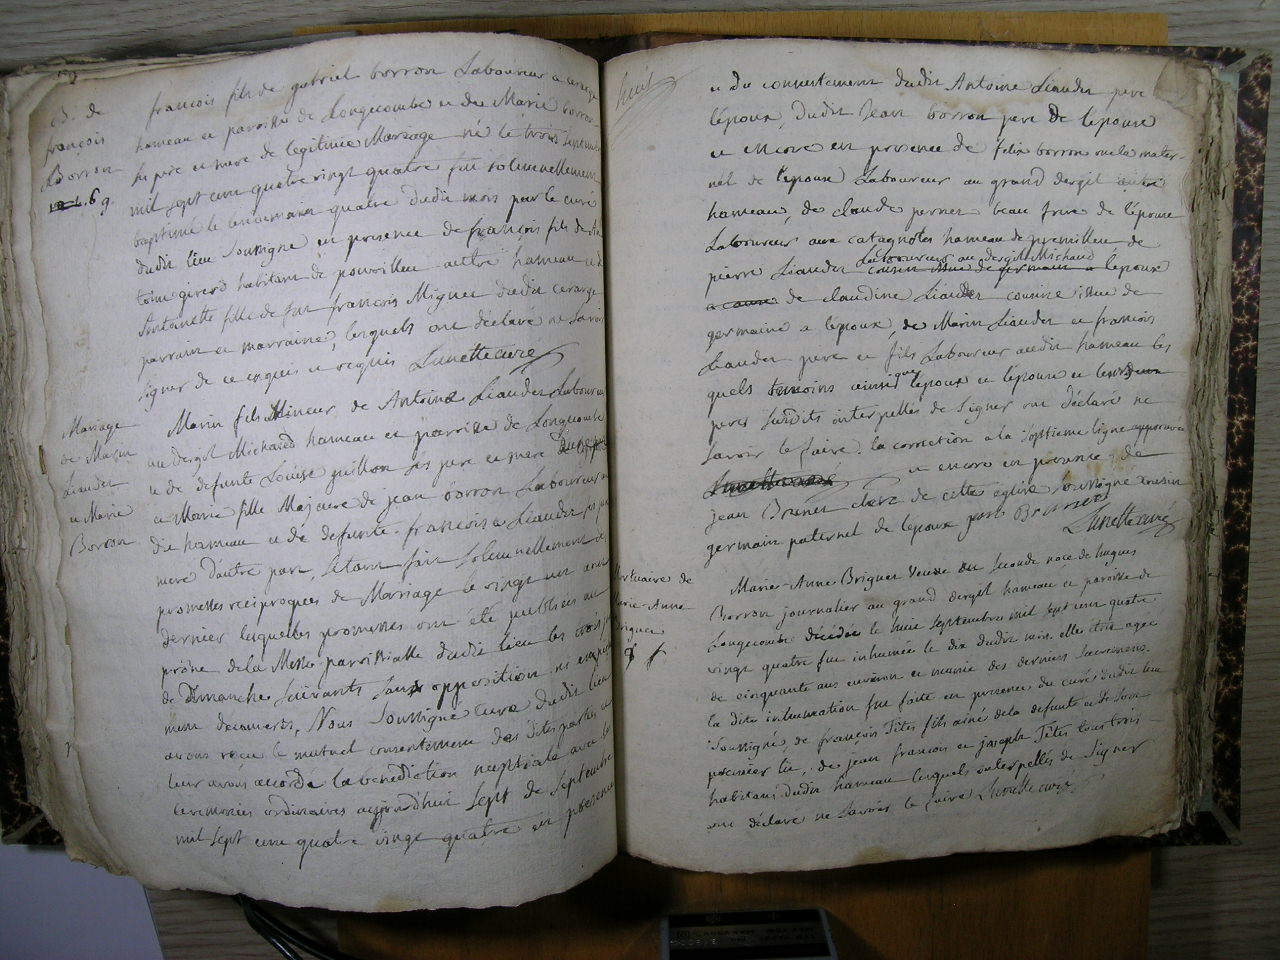 de
françois
Borron
69
françois fils de gabriel borron Laboureur a cerarge
hameau et paroisse de Longecombe et de Marie borron
ses pere et mere de legitime Mariage né le trois septembre
mil sept cent quatre vingt quatre fut solemnellement
baptisé le lendemain quatre dudit mois par le curé
dudit lieu soussigné en presence de françois fils de
girerd habitant de hameau et
Antoinette fille de feu françois Miguet dudit cerarge
parrain et marraine, lesquels ont déclaré ne savoir
signer de ce enquis et requis Lunette curé
Mariage
de Marin
Liauder
et Marie
Borron
Marin fils Mineur de Antoine Liauder Laboureur
au dergit Michaud hameau et parroisse de Longecombe
et de defunte Louise guillon ses pere et mere
et Marie fille Majeure de jean borron Laboureur
dit hameau et de defunte françoise Liauder ses pere
mere d'autre part, s'etant fait solemnellement
promesses reciproques de Mariage le vingt un aout
dernier lesquelles promesses ont été publiées au
prône de la Messe parroissialle dudit lieu les trois
de dimanches suivants sans opposition ni empeche
ment decouverts, Nous soussigné curé dudit lieu
avons reçu le mutuel consentement des dites parties et
leur avons accordé la benediction nuptiale avec les
ceremonies ordinaires aujourd'hui sept de septembre
mil sept cent quatre vingt quatre en presence
huit
et du consentement dudit Antoine Liauder pere
l'époux, dudit Jean borron pere de l'epouse
et encore en presence de felix borron oncle mater-
nel de l'epouse Laboureur au grand dergit autre
hameau, de claude pernet beau frere de l'épouse
Laboureur aux catagnoles hameau de premillieu de
Laboureur au dergit Michaud
pierre Liauder cousin issu de germain a l'epouse
de claudine Liauder cousine issue de
germaine a l'époux, de Marin Liauder et francois
Liauder pere et fils Laboureur audit hameau les
quels temoins ainsi que l'époux et l'épouse et leurs deux
peres susdits interpellés de signer ont déclaré ne
savoir le faire. la correction a la septieme ligne approuvée
et encore en presence de
jean Brunet clerc de cette eglise soussigné cousin
germain paternel de l'epoux jean Brunet
Lunette curé
Mortuaire de
Marie-Anne
Briguet
Marie-Anne Briguet Veuve en seconde noce de hugues
Borron journalier au grand dergit hameau et paroisse de
Longecombe décédée le huit septembre mil sept cent quatre
vingt quatre fut inhumée le dix dudit mois. elle etoit agée
de cinquante ans environ et munie des derniers sacremens.
la dite inhumation fut faite en presence du curé dudit lieu
soussigné, de françois Têtes fils ainé de la defunte et de son
premier lit, de jean francois et joseph Têtes tous trois
habitans dudit hameau lesquels interpellés de signer
ont déclaré ne savoir le faire Lunette curé